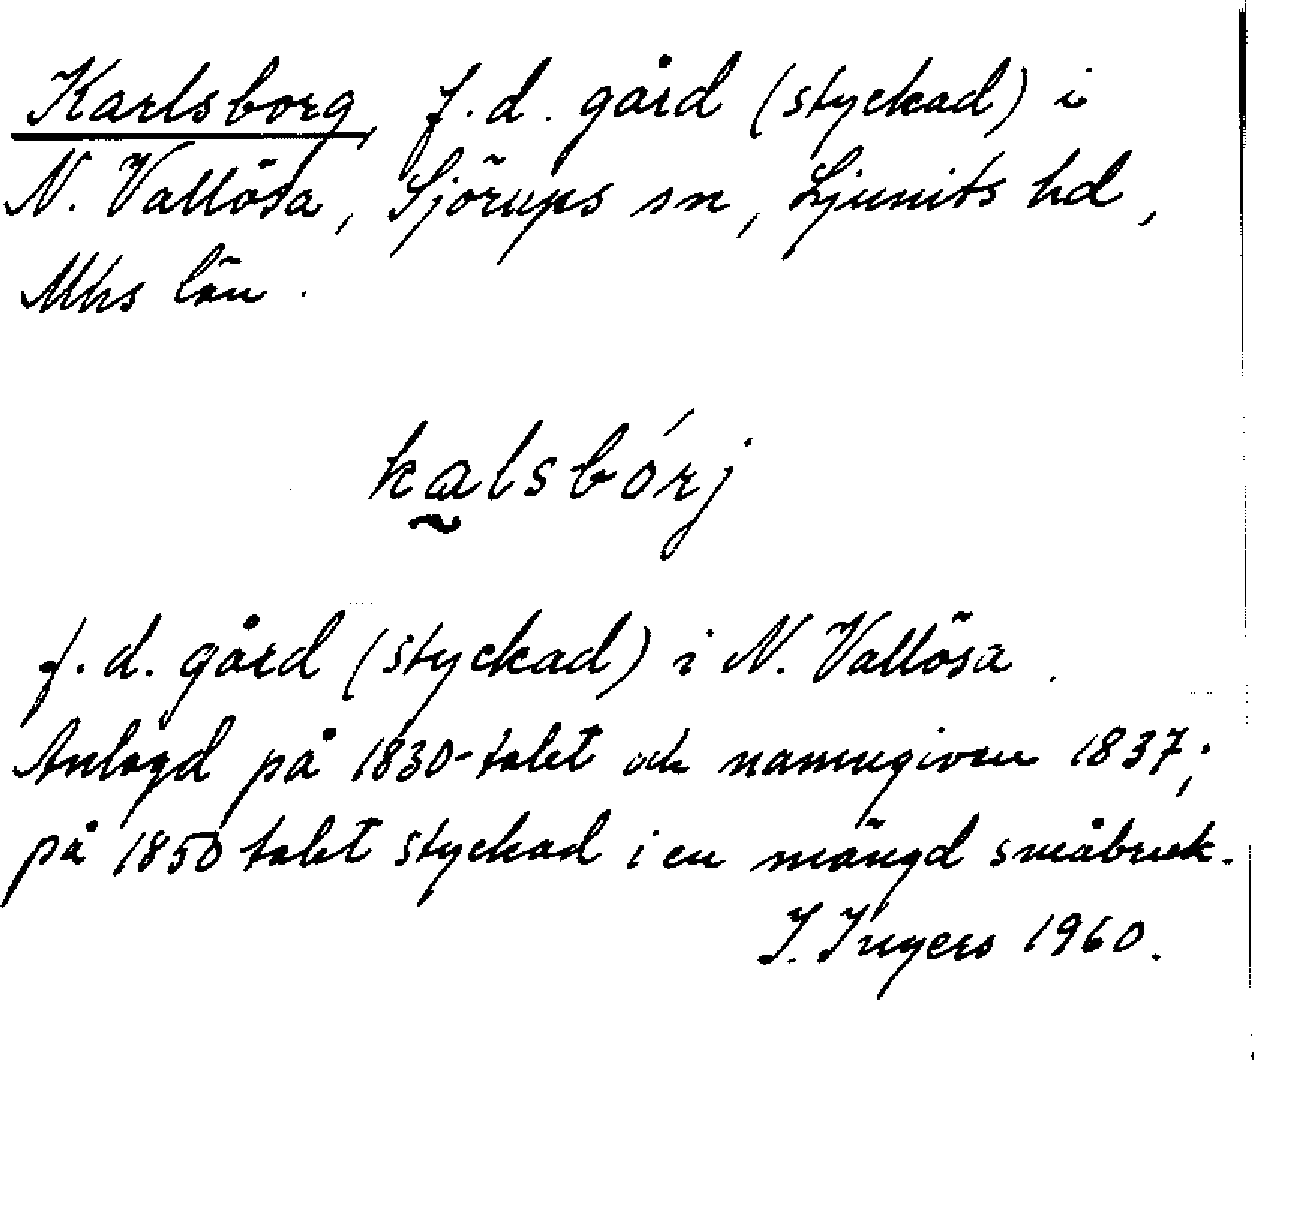 Karlsborg, f.d. gård (styckad) i
N. Vallösa, Sjörups sn, Ljunits hd,
Mhs län.
kalsbórj
f.d. gård (styckad) i N. Vallösa.
Anlagd på 1830-talet och namngiven 1837;
på 1850 talet styckad i en mängd småbruk.
I. Ingers 1960.